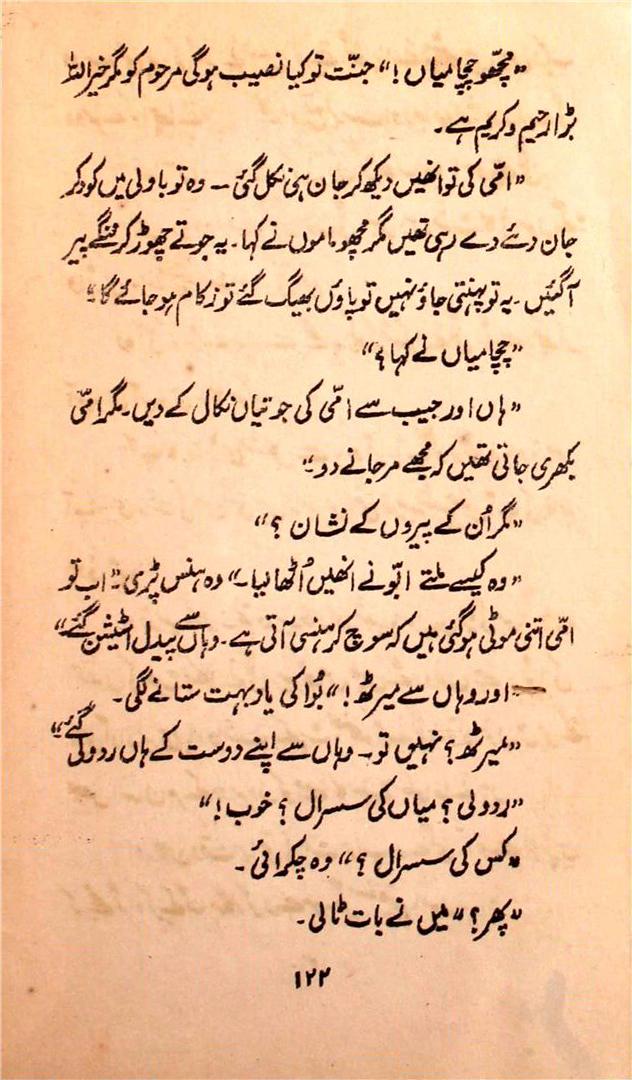 "مچھو چچا میاں!" جنّت تو کیا نصیب ہوگی مرحوم کو مگر خیر اللہ
بڑا رحیم و کریم ہے۔
"امّی کی تو انھیں دیکھ کر جان ہی نکل گئی ـ وہ تو باولی میں کود کر
جان دئے دے رہی تھیں مگر مچھو ماموں نے کہا۔ یہ جوتے چھوڑ کر ننگے پیر
آگئیں۔ یہ تو پہنتی جاؤ نہیں تو پاؤں بھیگ گئے تو زکام ہو جائے گا۔"
"چچا میاں نے کہا؟"
"ہاں اور جیب سے امّی کی جوتیاں نکال کے دیں۔ مگر امّی
بکھری جاتی تھیں کہ مجھے مرجانے دو۔"
"مگر اُن کے پیروں کے نشان؟"
"وہ کیسے ملتے ابّو نے انھیں اُٹھا لیا۔" وہ ہنس پڑی۔ "اب تو
امّی اتنی موٹی ہوگئی ہیں کہ سوچ کر ہنسی آتی ہے۔ وہاں سے پیدل اسٹیشن گئے"
"اور وہاں سے میرٹھ!" بُوا کی یاد بہت ستانے لگی۔
"میرٹھ؟ نہیں تو۔ وہاں سے اپنے دوست کے ہاں ردولی گئے۔"
"ردولی؟ میاں کی سسرال؟ خوب!"
"کس کی سسرال؟" وہ چکرائی۔
"پھر؟" میں نے بات ٹالی۔
۱۲۲